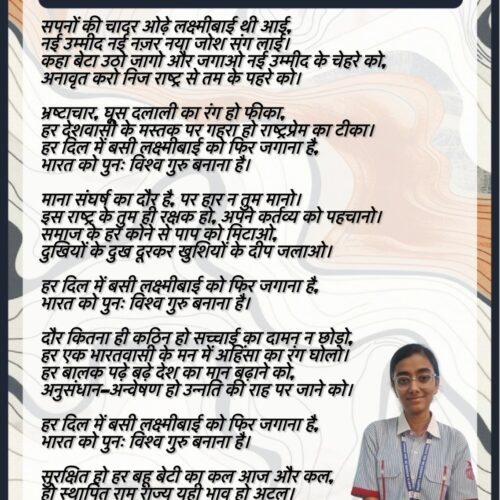 सपनों की चादर ओढ़े लक्ष्मीबाई थी आई,
नई उम्मीद नई नज़र नया जोश संग लाई।
कहा बेटा उठो जागो और जगाओ नई उम्मीद के चेहरे को,
अनावृत करो निज राष्ट्र से तम के पहरे को।
भ्रष्टाचार, घूस दलाली का रंग हो फीका,
हर देशवासी के मस्तक पर गहरा हो राष्ट्रप्रेम का टीका।
हर दिल में बसी लक्ष्मीबाई को फिर जगाना है,
भारत को पुनः विश्व गुरु बनाना है।
माना संघर्ष का दौर है, पर हार न तुम मानो।
इस राष्ट्र के तुम ही रक्षक हो, अपने कर्तव्य को पहचानो।
समाज के हर कोने से पाप को मिटाओ,
दुखियों के दुख दूरकर खुशियों के दीप जलाओ।
हर दिल में बसी लक्ष्मीबाई को फिर जगाना है,
भारत को पुनः विश्व गुरु बनाना है।
दौर कितना ही कठिन हो सच्चाई का दामन न छोड़ो,
हर एक भारतवासी के मन में अहिंसा का रंग घोलो।
हर बालक पढ़े बढ़े देश का मान बढ़ाने को,
अनुसंधान-अन्वेषण हो उन्नति की राह पर जाने को।
हर दिल में बसी लक्ष्मीबाई को फिर जगाना है,
भारत को पुनः विश्व गुरु बनाना है।
सुरक्षित हो हर बहू बेटी का कल आज और कल,
हो स्थापित राम राज्य यही भाव हो अटल।